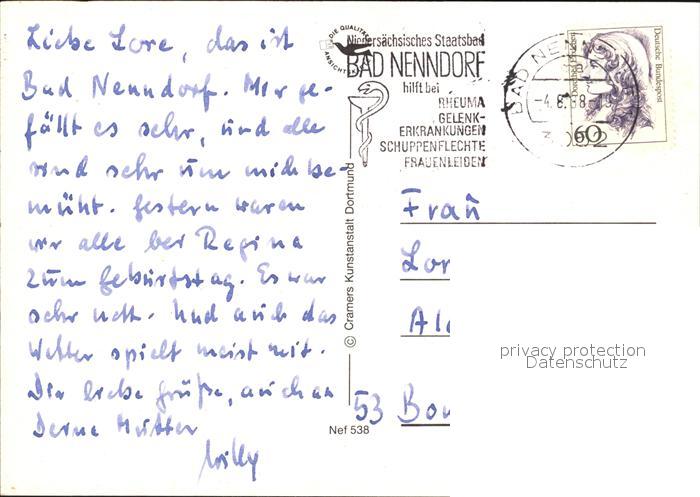 Liebe Lore, das ist
Bad Nenndorf. Mir ge-
fällt es sehr, und alle
sind sehr um mich be-
müht. Gestern waren
wir alle bei Regina
zum Geburtstag. Es war
sehr nett. Und auch das
Wetter spielt meist mit.
Dir liebe Grüße, auch an
Deine Mutter
Willy
DIE QUALITÄTS
ANSICHT
Niedersächsisches Staatsbad
BAD NENNDORF
hilft bei
RHEUMA
GELENK-
ERKRANKUNGEN
SCHUPPENFLECHTE
FRAUENLEIDEN
BAD NEN
-4.8.88
3052
Deutsche Bundespost
60
© Cramers Kunstanstalt Dortmund
Nef 538
Frau
Lor
Al
53 Bon
privacy protection
Datenschutz